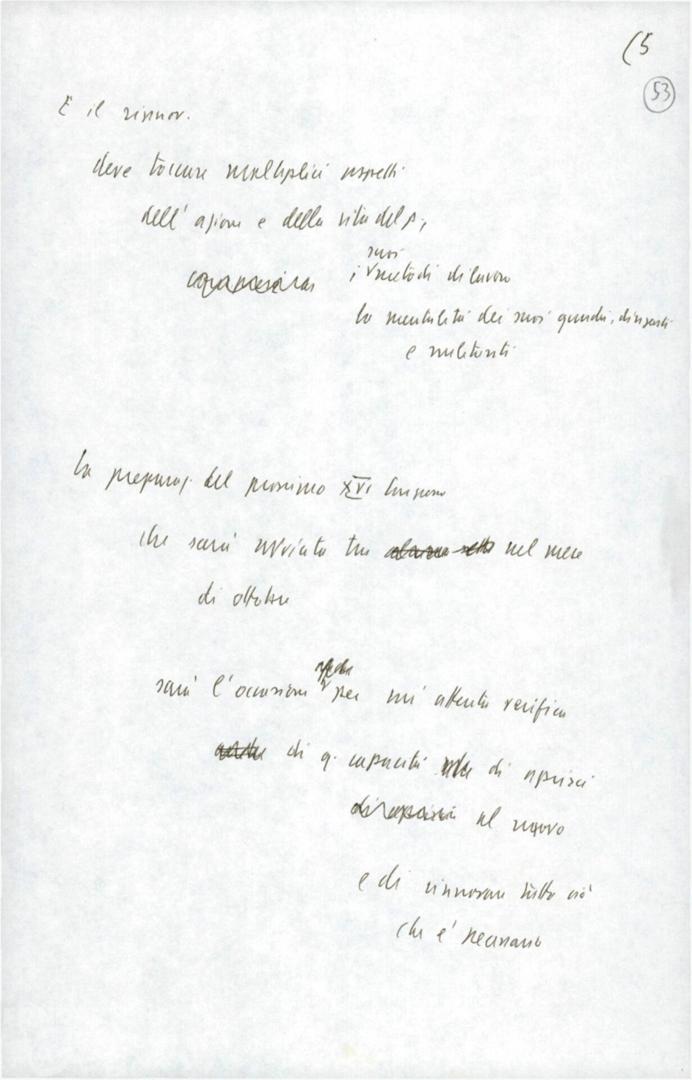 (5
53
E il rinnov.
deve toccare molteplici aspetti
dell'azione e della vita del p,
suoi
i metodi di lavoro
la mentalità dei suoi quadri, dirigenti
e militanti
La preparaz. del prossimo XVI Congresso
che sarà avviato tra nel mese
di ottobre
sarà l'occasione per un'attenta verifica
di q. capacità di aprirsi
al nuovo
e di rinnovare tutto ciò
che e' necessario